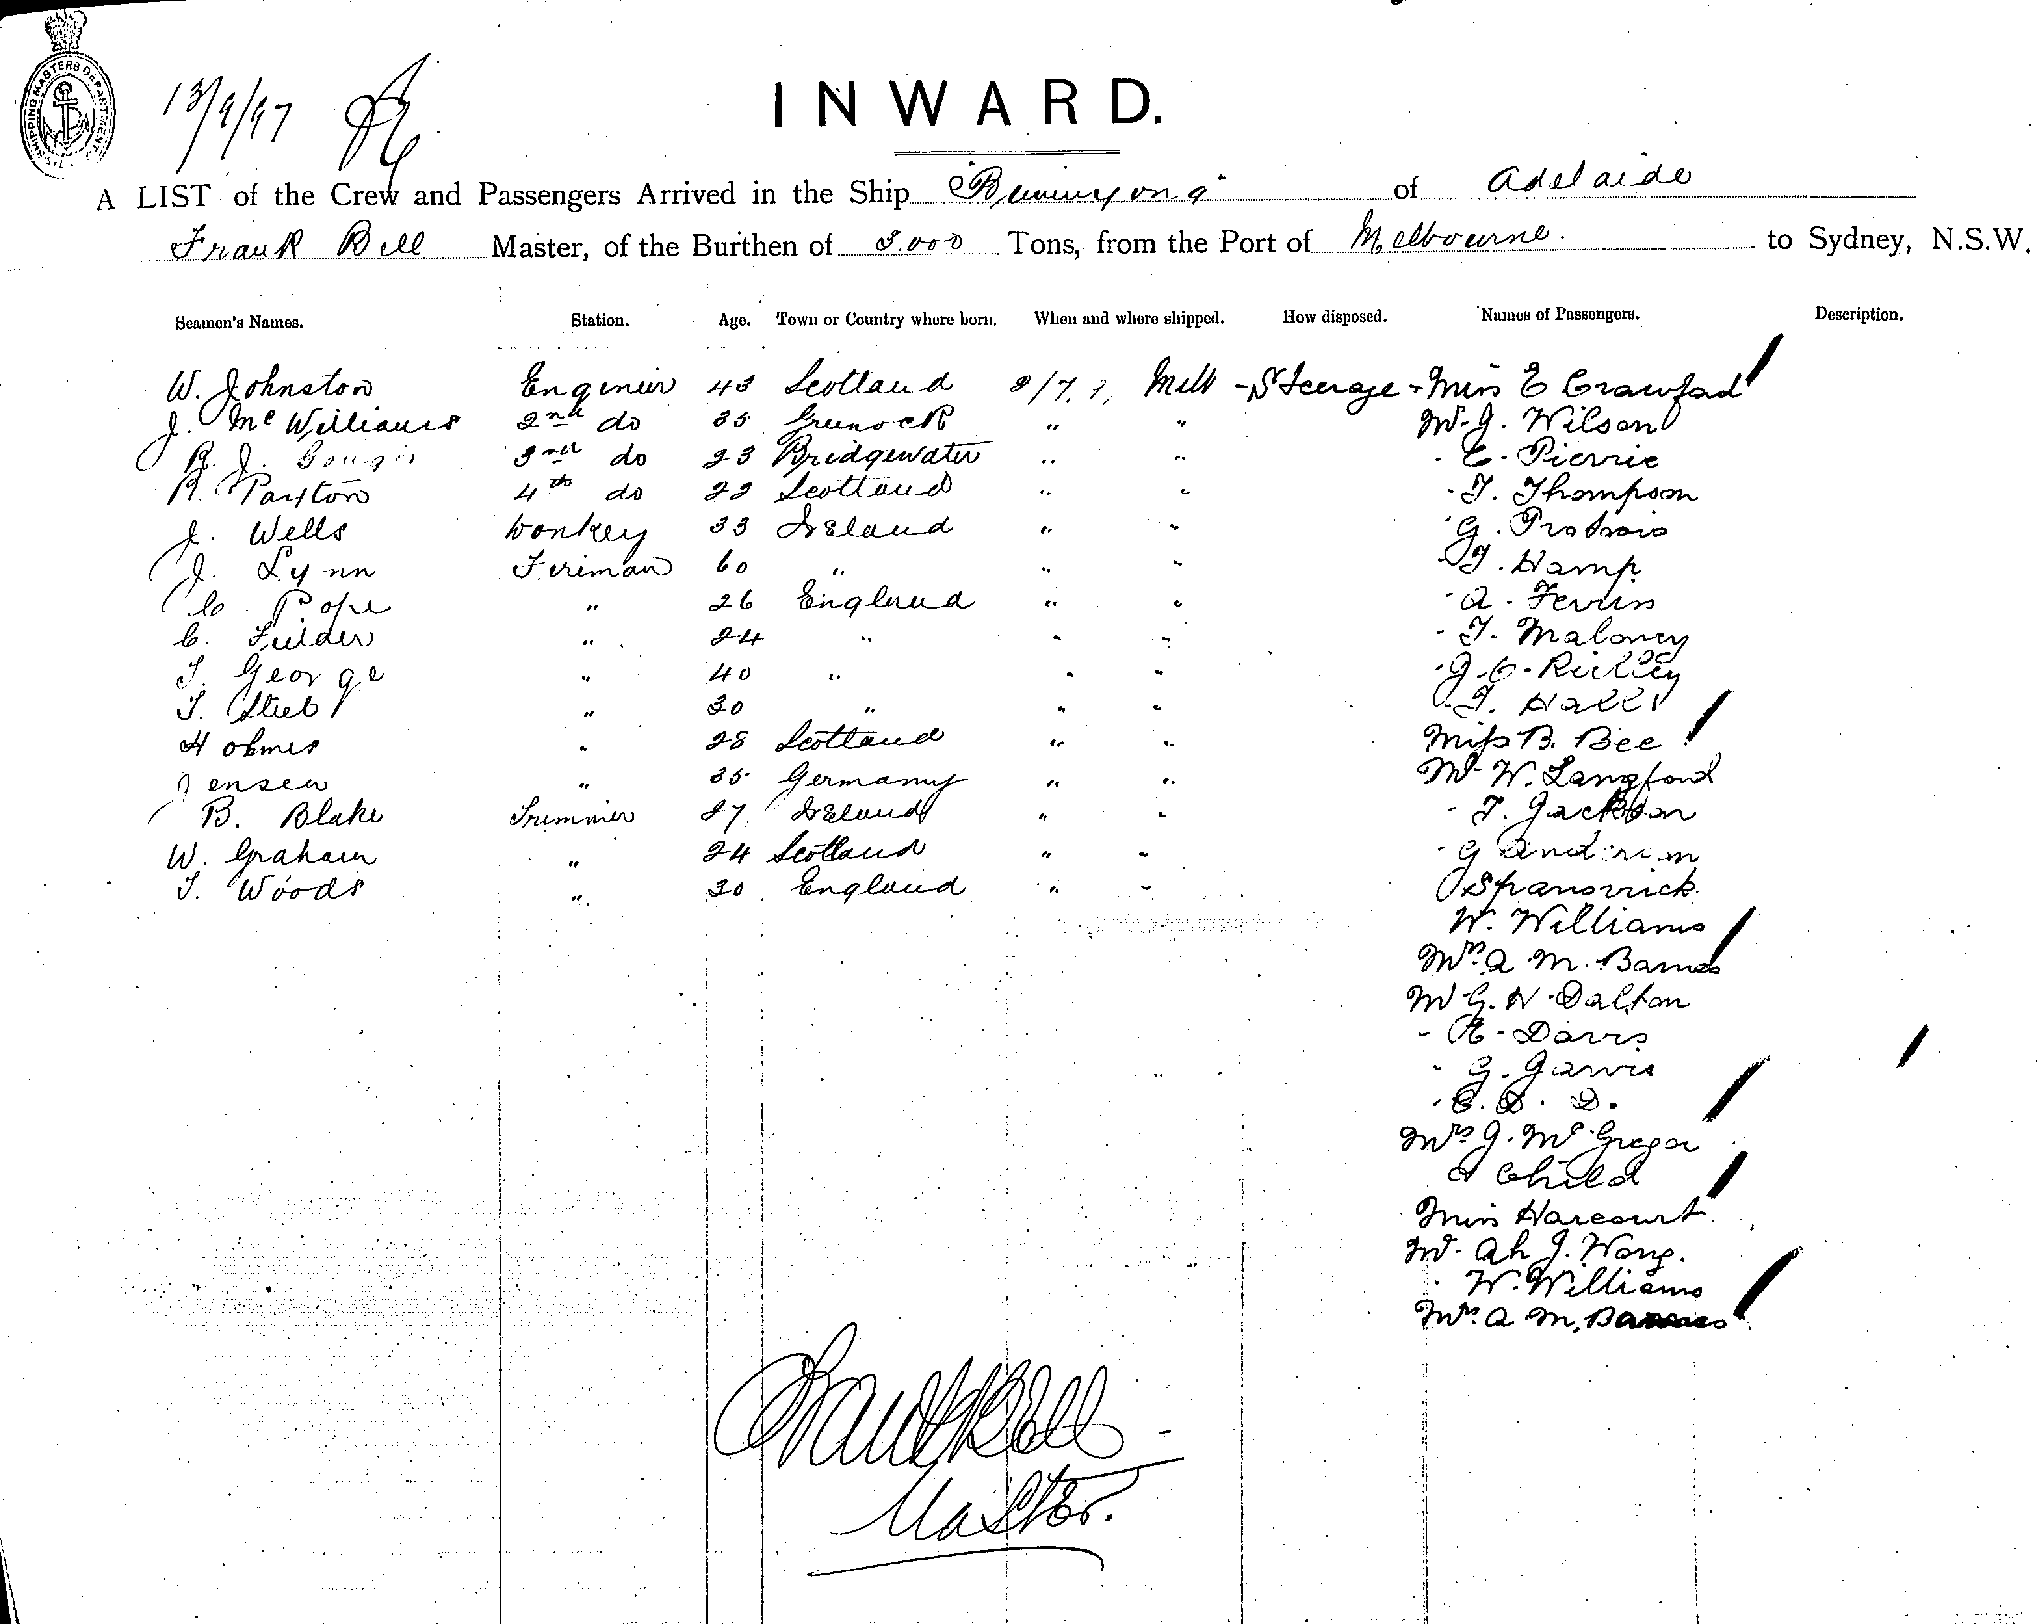 SHIPPING MASTERS DEPARTMENT
13/9/97
INWARD.
A LIST of the Crew and Passengers Arrived in the Ship "Buninyong" of Adelaide
Frank Bell Master, of the Burthen of 3.000 Tons, from the Port of Melbourne. to Sydney, N.S.W.
Seamen's Names. Station. Age. Town or Country where born. When and where shipped. How disposed. Names of Passengers. Description.
W. Johnston Engineer 43 Scotland Melb - Steerage - Miss E Crawford
J. McWilliams 2nd do 35 Greenock " " Mr J. Wilson
R. J. 3rd do 23 Bridgewater " " - C. Pierrie
R. Paxton 4th do 22 Scotland " " - T. Thompson
J. Wells Donkey 33 Ireland " " - G.
J. Lynn Fireman 60 " " " - T. Hamp
C. Pope " 26 England " " - A.
C. Fielder " 24 " " " - T. Maloney
T. George " 40 " " " - J. C. Ridley
T. " 30 " " " - T. Hall
Holmes " 28 Scotland " " Miss B. Bee
Jensen " 35 Germany " " Mr W. Langford
B. Blake Trimmer 27 Ireland " " - T. Jackson
W. Graham " 24 Scotland " " - G Anderson
T. Woods " 30 England " "
W. Williams
Mrs. A M. Barnes
Mr G. H. Dalton
- E. Davis
- G. Jarvis
- C. D. D.
Mrs J. McGregor
& Child
Miss Harcourt
Mr. Ah J. Wong.
- W. Williams
Mrs. A M. Barnes
Frank Bell
Master.